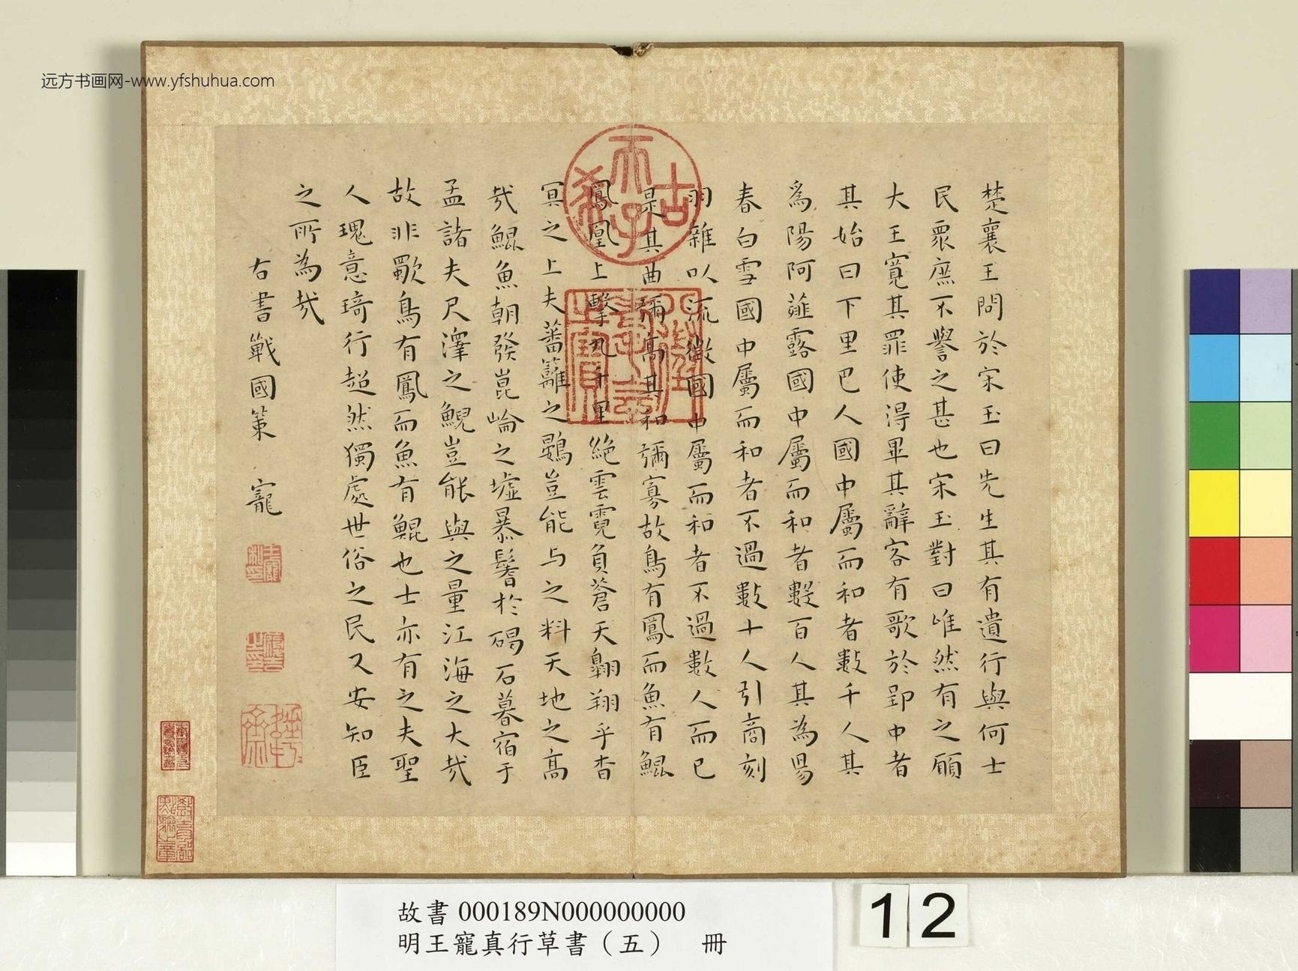 远方书画网-www.yfshuhua.com
楚襄王問於宋玉曰先生其有遺行與何士
民眾庶不譽之甚也宋玉對曰唯然有之願
大王寬其罪使得畢其辭客有歌於郢中者
其始曰下里巴人國中屬而和者數千人其
為陽阿薤露國中屬而和者數百人其為陽
春白雪國中屬而和者不過數十人引商刻
羽雜以流徵國中屬而和者不過數人而已
是其曲彌高其和彌寡故鳥有鳳而魚有鯤
鳳凰上擊九千里絕雲霓負蒼天翱翔乎杳
冥之上夫藩籬之鷃豈能与之料天地之高
哉鯤魚朝發崑崙之墟暴鬐於碣石暮宿于
孟諸夫尺澤之鯢豈能與之量江海之大哉
故非獨鳥有鳳而魚有鯤也士亦有之夫聖
人瑰意琦行超然獨處世俗之民又安知臣
之所為哉
右書戰國策 寵
古希天子
壽
之寶
故書 000189N000000000
明王寵真行草書（五） 冊
12